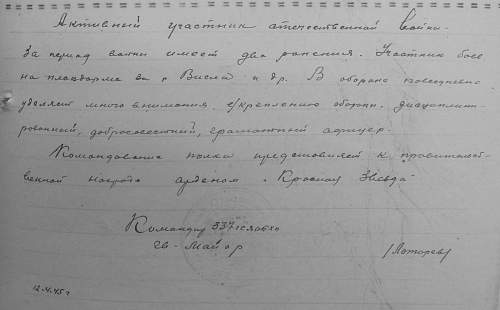 Активный участник отечественной войны.
За период войны имеет два ранения. Участник боев
на плацдарме за р. Висла и др. В обороне повседневно
уделяет много внимания укреплению обороны. дисциплини-
рованный, добросовестный, грамотный офицер.
Командование полка представляет к правительст-
венной награде орденом "Красная Звезда"
Командир 337
гв - Майор /Лоторев/
12.4.45г